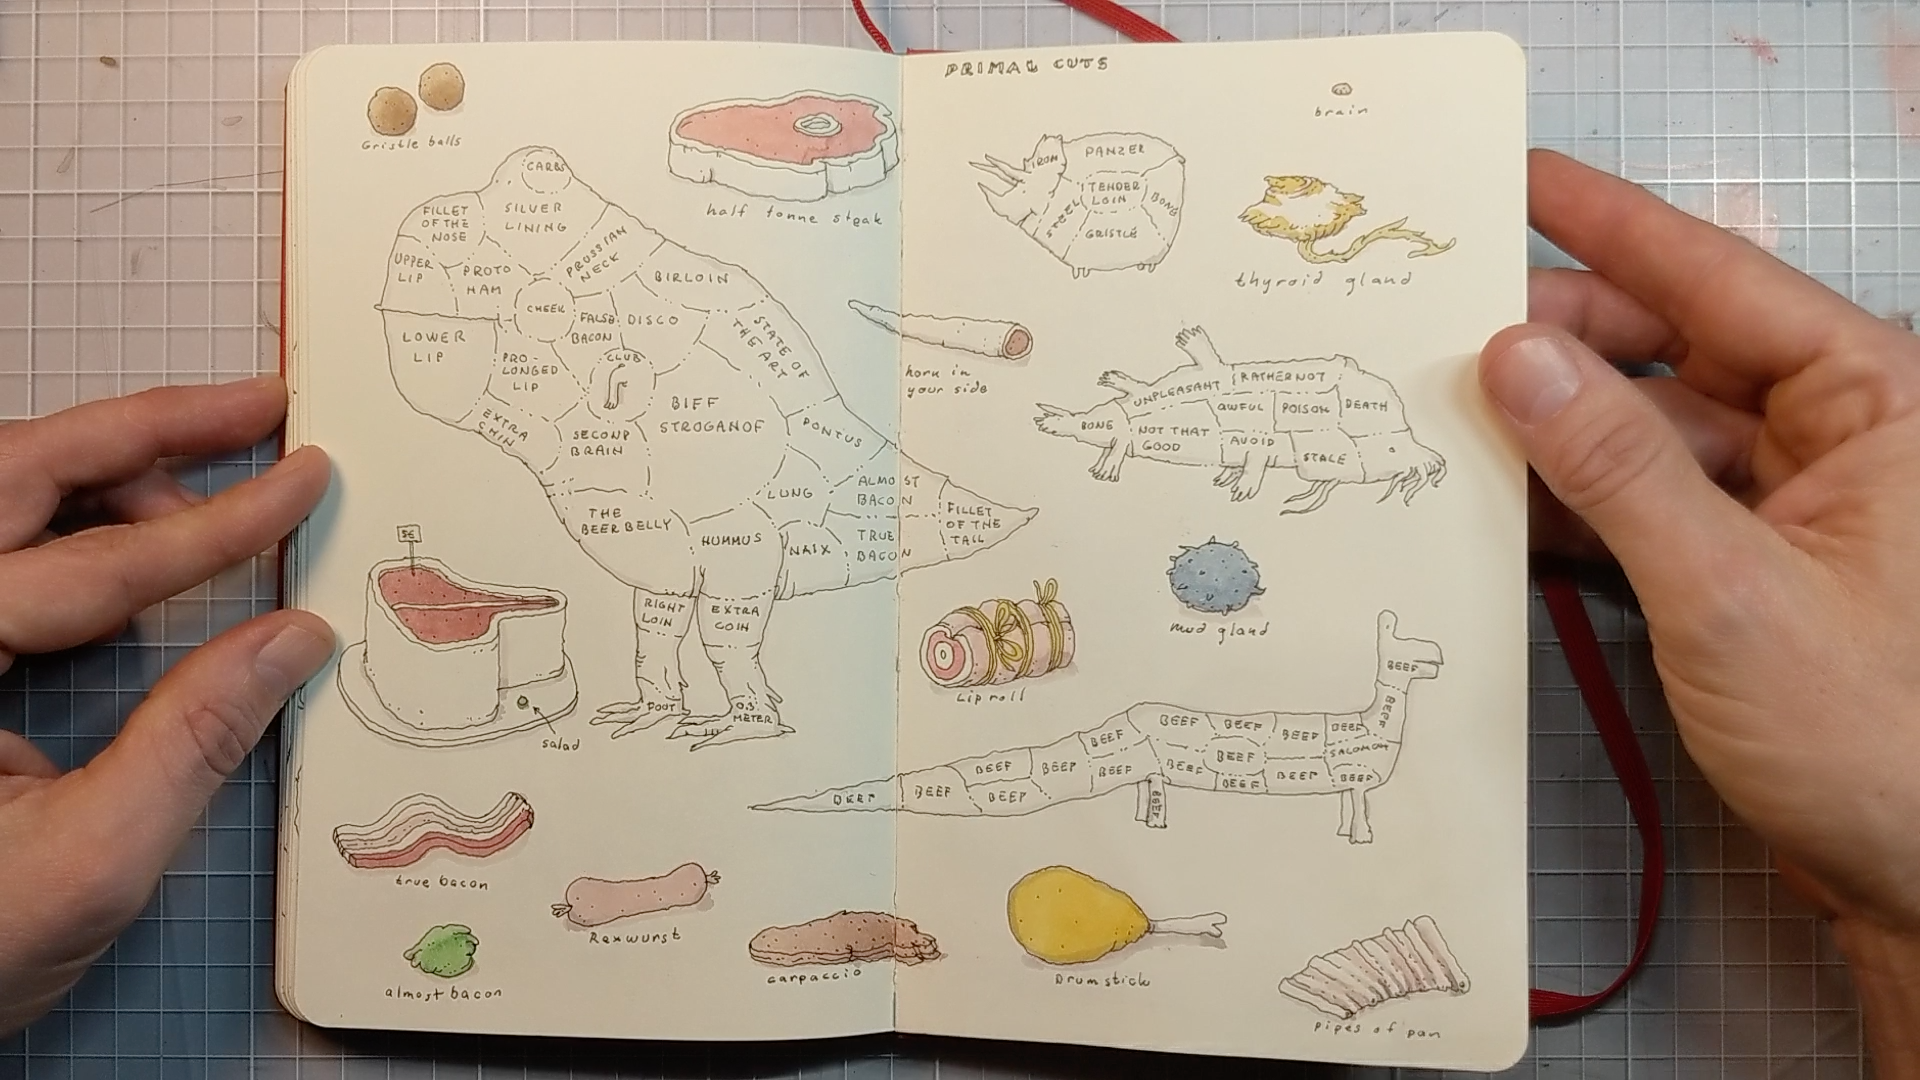 PRIMAL CUTS
Gristle balls
half tonne steak
CARBS
FILLET
OF THE
NOSE
SILVER
LINING
PRUSSIAN
NECK
UPPER
LIP
PROTO
HAM
BIRLOIN
CHEEK
FALSE
BACON
DISCO
STATE OF
THE ART
LOWER
LIP
PRO-
LONGED
LIP
CLUB
BIFF
STROGANOF
EXTRA
CHIN
SECOND
BRAIN
PONTUS
LUNG
ALMOST
BACON
FILLET
OF THE
TAIL
THE
BEER BELLY
HUMMUS
NAIX
TRUE
BACON
RIGHT
LOIN
EXTRA
COIN
FOOT
0.3
METER
5€
salad
true bacon
almost bacon
Rexwurst
carpaccio
brain
IRON
PANZER
TENDER
LOIN
BONE
STEEL
GRISTLE
thyroid gland
horn in
your side
UNPLEASANT
RATHER NOT
AWFUL
POISON
DEATH
BONE
NOT THAT
GOOD
AVOID
STALE
mud gland
Lip roll
BEEF
BEEF
BEEF
BEEF
BEEF
BEEF
BEEF
SALOMON
BEEF
BEEF
BEEF
BEEF
BEEF
BEEF
BEEF
BEEF
BEEF
BEEF
BEEF
BEEF
BEEF
Drumstick
pipes of pan